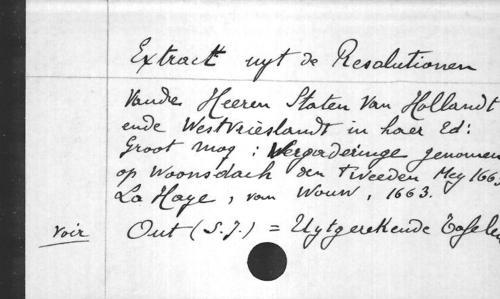 Extract uyt de Resolutionen
Vande Heeren Staten Van Hollandt
ende Westvrieslandt in haer Ed:
Groot Mog: Vergaderinge genomen
op Woonsdach den Tweeden Mey 166
La Haye, van Wouw, 1663.
voir Out (S.J.) = Uytgerekende Tafelen